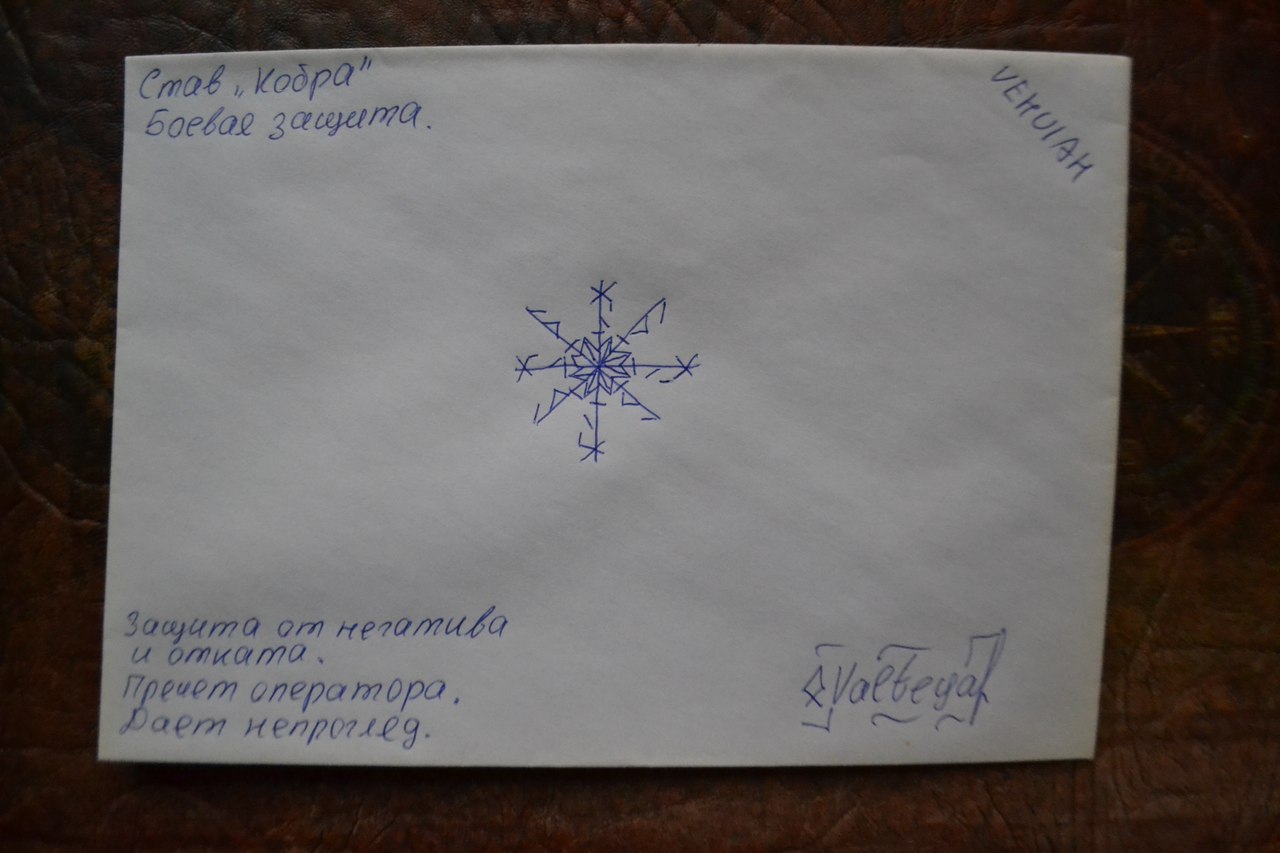 Став „Кобра"
Боевая защита.
VEHUIAH
Защита от негатива
и отката.
Пречет оператора.
Дает непроглед.
Valbeyal